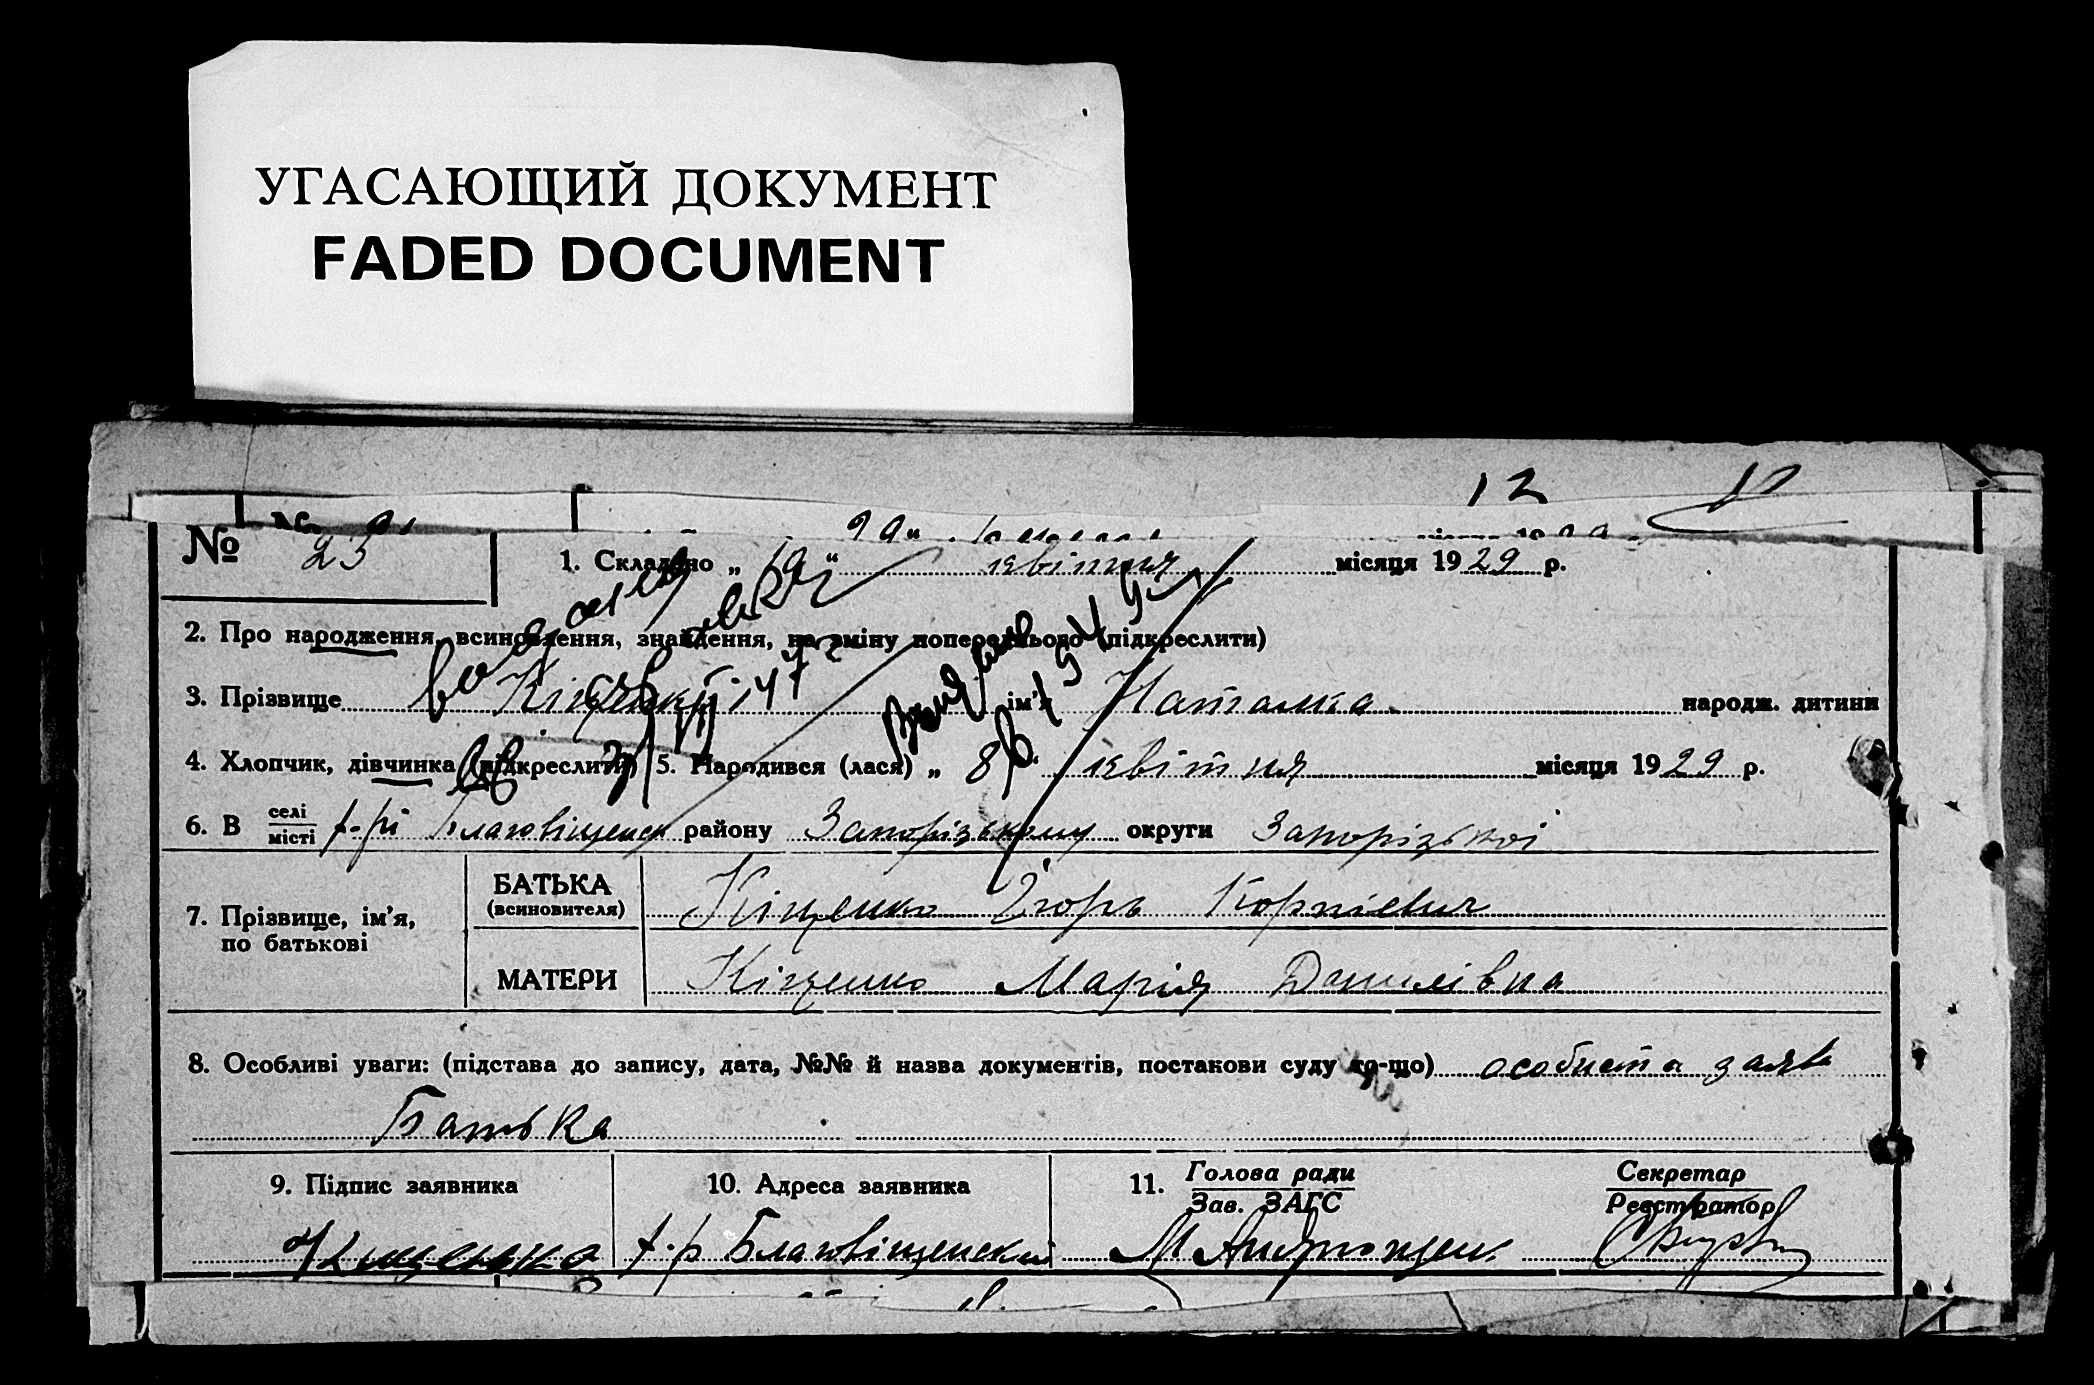 УГАСАЮЩИЙ ДОКУМЕНТ
FADED DOCUMENT
12
№ 23
1. Складено „ 19 “ квітня місяця 1929 р.
2. Про народження, всиновлення, знайдення, на зміну попереднього (підкреслити)
3. Прізвище ім'я Наталка народж. дитини
4. Хлопчик, дівчинка (підкреслити) 5. Народився (лася) „ 8 “ квітня місяця 1929 р.
6. В селі місті Благовіщенск району Запорізькому округи Запорізької
7. Прізвище, ім'я, по батькові
БАТЬКА (всиновителя) Кіщенко Ігорь Корнієвич
МАТЕРИ Кіщенко Марія Данилівна
8. Особливі уваги: (підстава до запису, дата, №№ й назва документів, постакови суду то-що) особиста заяв
Батька
9. Підпис заявника 10. Адреса заявника 11. Голова ради Зав. ЗАГС Секретар Реєстратор
Кищенко х-р Благовіщенский